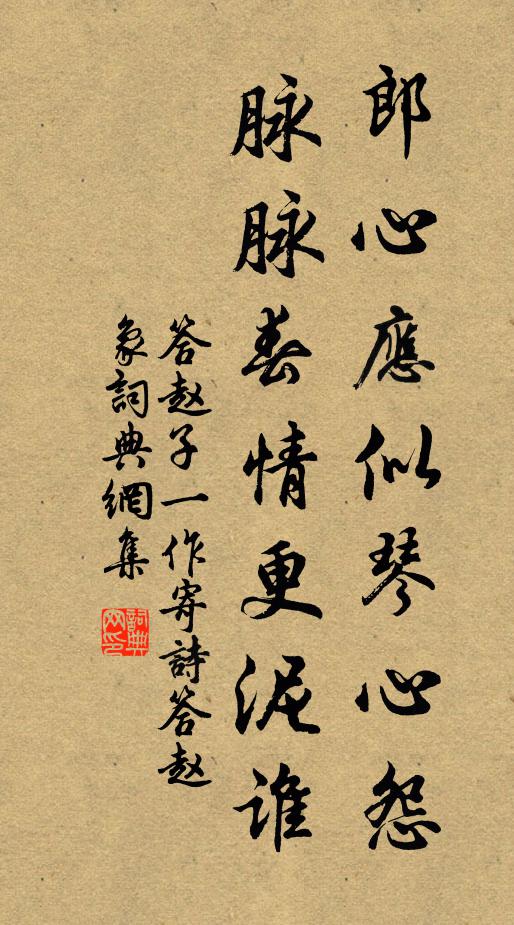 郎心應似琴心怨
脉脉春情更泥誰
答赵子一作寄詩答赵
象詞典網集
詞典
网印